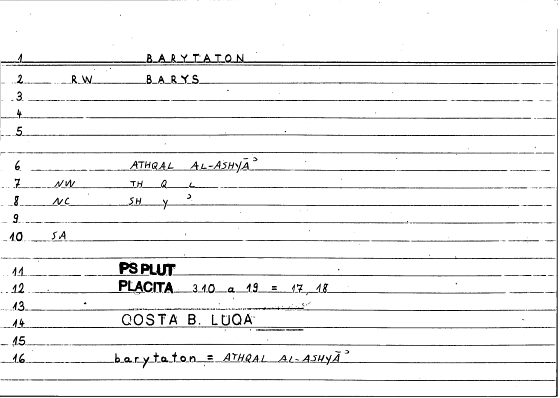 1 BARYTATON
2 R.W BARYS
3
4
5
6 ATHQAL AL-ASHYĀʾ
7 NW TH Q L
8 NC SH Y ʾ
9
10 SA
11 PS PLUT
12 PLACITA 310 a 19 = 17, 18
13
14 QOSTA B. LUQA
15
16 barytaton = ATHQAL AL-ASHYĀʾ